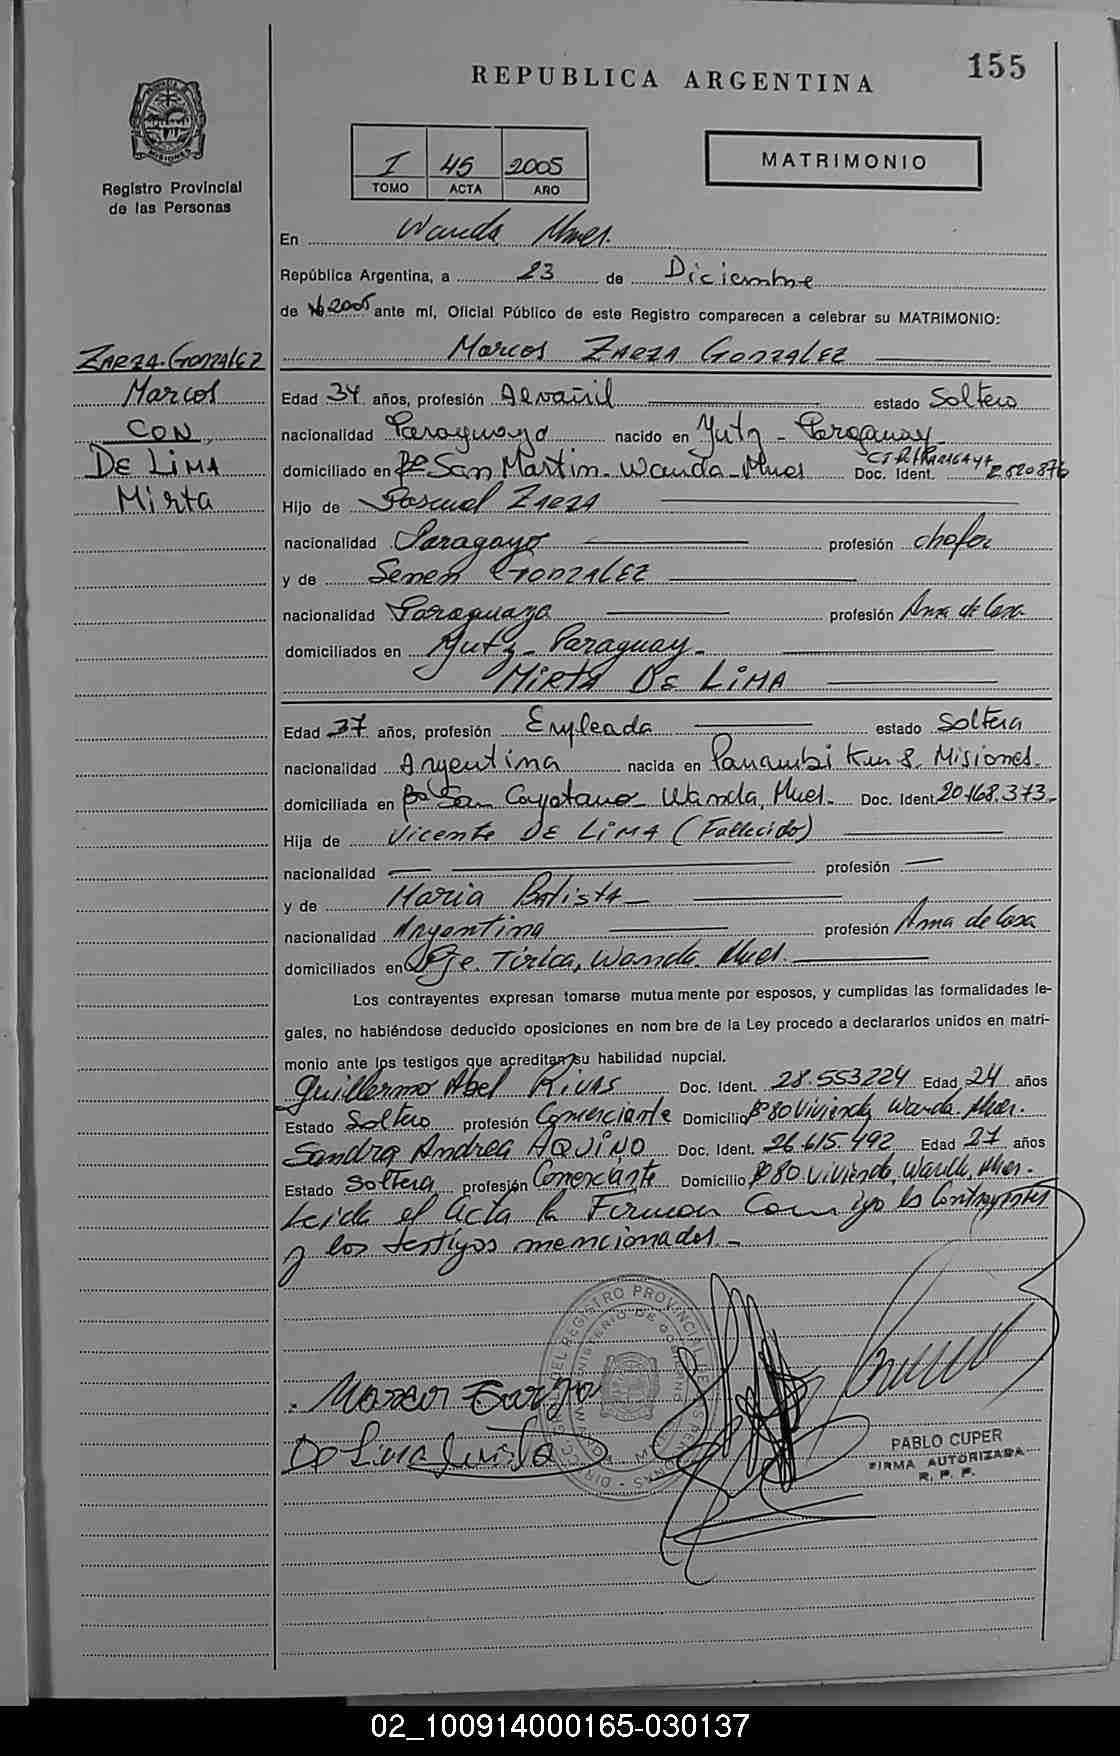 155
REPUBLICA ARGENTINA
MISIONES
Registro Provincial
de las Personas
I 45 2005
TOMO ACTA AÑO
MATRIMONIO
En Wanda Mnes.
República Argentina, a 23 de Diciembre
de 2005 ante mí, Oficial Público de este Registro comparecen a celebrar su MATRIMONIO:
Marcos ZARZA GONZALEZ
ZARZA-GONZALEZ
Marcos
CON
DE LIMA
Mirta
Edad 34 años, profesión Alvañil estado Soltero
nacionalidad Paraguaya nacido en Yuty - Paraguay
domiciliado en Bº San Martin - Wanda - Mnes Doc. Ident. 2820876
Hijo de Pascual ZARZA
nacionalidad Paragayo profesión chofer
y de Senen GONZALEZ
nacionalidad Paraguaya profesión Ama de Casa
domiciliados en Yuty - Paraguay -
Mirta DE LIMA
Edad 37 años, profesión Empleada estado Soltera
nacionalidad Argentina nacida en Panambi Km 8. Misiones.
domiciliada en Bº San Cayetano Wanda, Mnes. Doc. Ident. 20.168.373-
Hija de Vicente DE LIMA (Fallecido)
nacionalidad profesión
y de Maria Batista
nacionalidad Argentina profesión Ama de Casa
domiciliados en Pje. Tirica, Wanda Mnes.
Los contrayentes expresan tomarse mutua mente por esposos, y cumplidas las formalidades le-
gales, no habiéndose deducido oposiciones en nom bre de la Ley procedo a declararlos unidos en matri-
monio ante los testigos que acreditan su habilidad nupcial.
Guillermo Abel Rivas Doc. Ident. 28.553224 Edad 24 años
Estado Soltero profesión Comerciante Domicilio Bº 80 Vivienda Wanda. Mnes.
Sandra Andrea AQUINO Doc. Ident. 26.615.492 Edad 27 años
Estado Soltera profesión Comerciante Domicilio Bº 80 Vivienda, Wanda, Mnes.
Leida el Acta la Firman Conmigo los Contrayentes
y los testigos mencionados. -
Marcos Zarza
De Lima Mirta
PABLO CUPER
FIRMA AUTORIZADA
R. P. P.
02_100914000165-030137